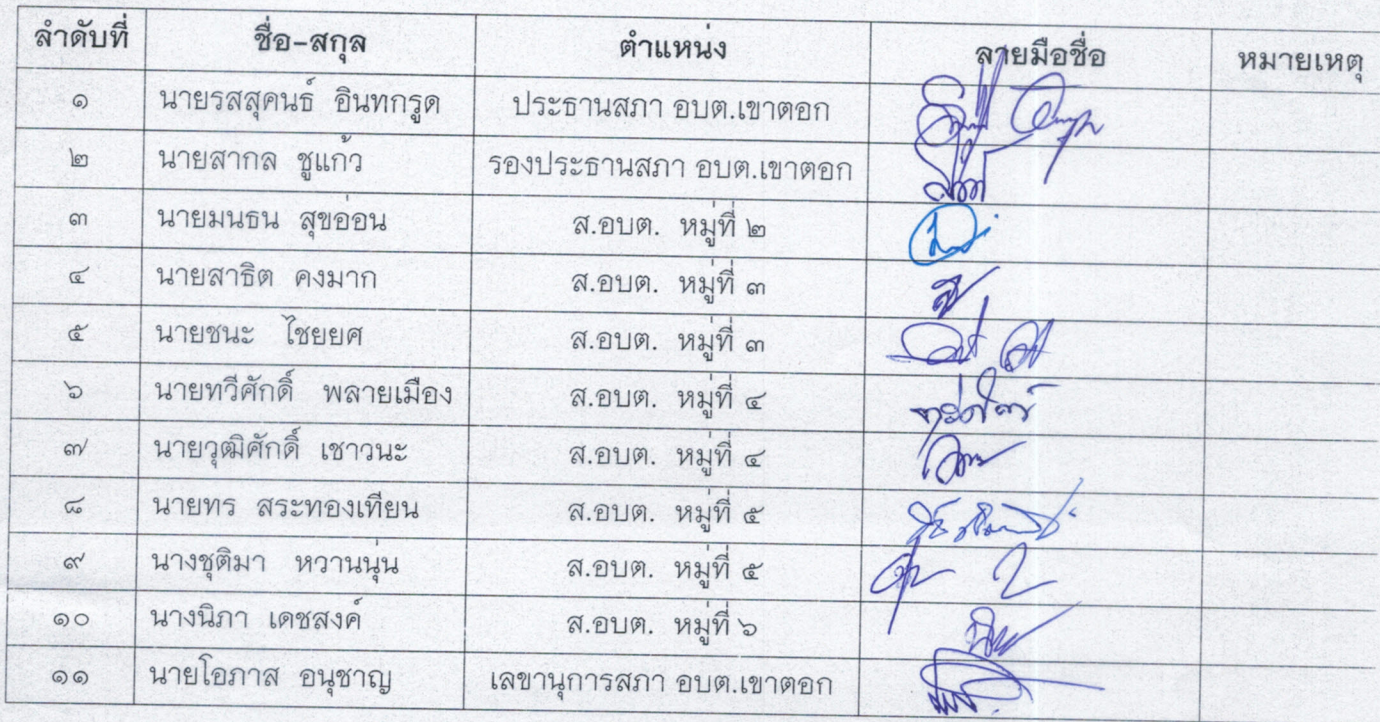 ลำดับที่ ชื่อ-สกุล ตำแหน่ง ลายมือชื่อ หมายเหตุ
๑ นายรสสุคนธ์ อินทกรูด ประธานสภา อบต.เขาตอก
๒ นายสากล ชูแก้ว รองประธานสภา อบต.เขาตอก
๓ นายมนธน สุขอ่อน ส.อบต. หมู่ที่ ๒
๔ นายสาธิต คงมาก ส.อบต. หมู่ที่ ๓
๕ นายชนะ ไชยยศ ส.อบต. หมู่ที่ ๓
๖ นายทวีศักดิ์ พลายเมือง ส.อบต. หมู่ที่ ๔
๗ นายวุฒิศักดิ์ เชาวนะ ส.อบต. หมู่ที่ ๔
๘ นายทร สระทองเทียน ส.อบต. หมู่ที่ ๕
๙ นางชุติมา หวานนุ่น ส.อบต. หมู่ที่ ๕
๑๐ นางนิภา เดชสงค์ ส.อบต. หมู่ที่ ๖
๑๑ นายโอภาส อนุชาญ เลขานุการสภา อบต.เขาตอก